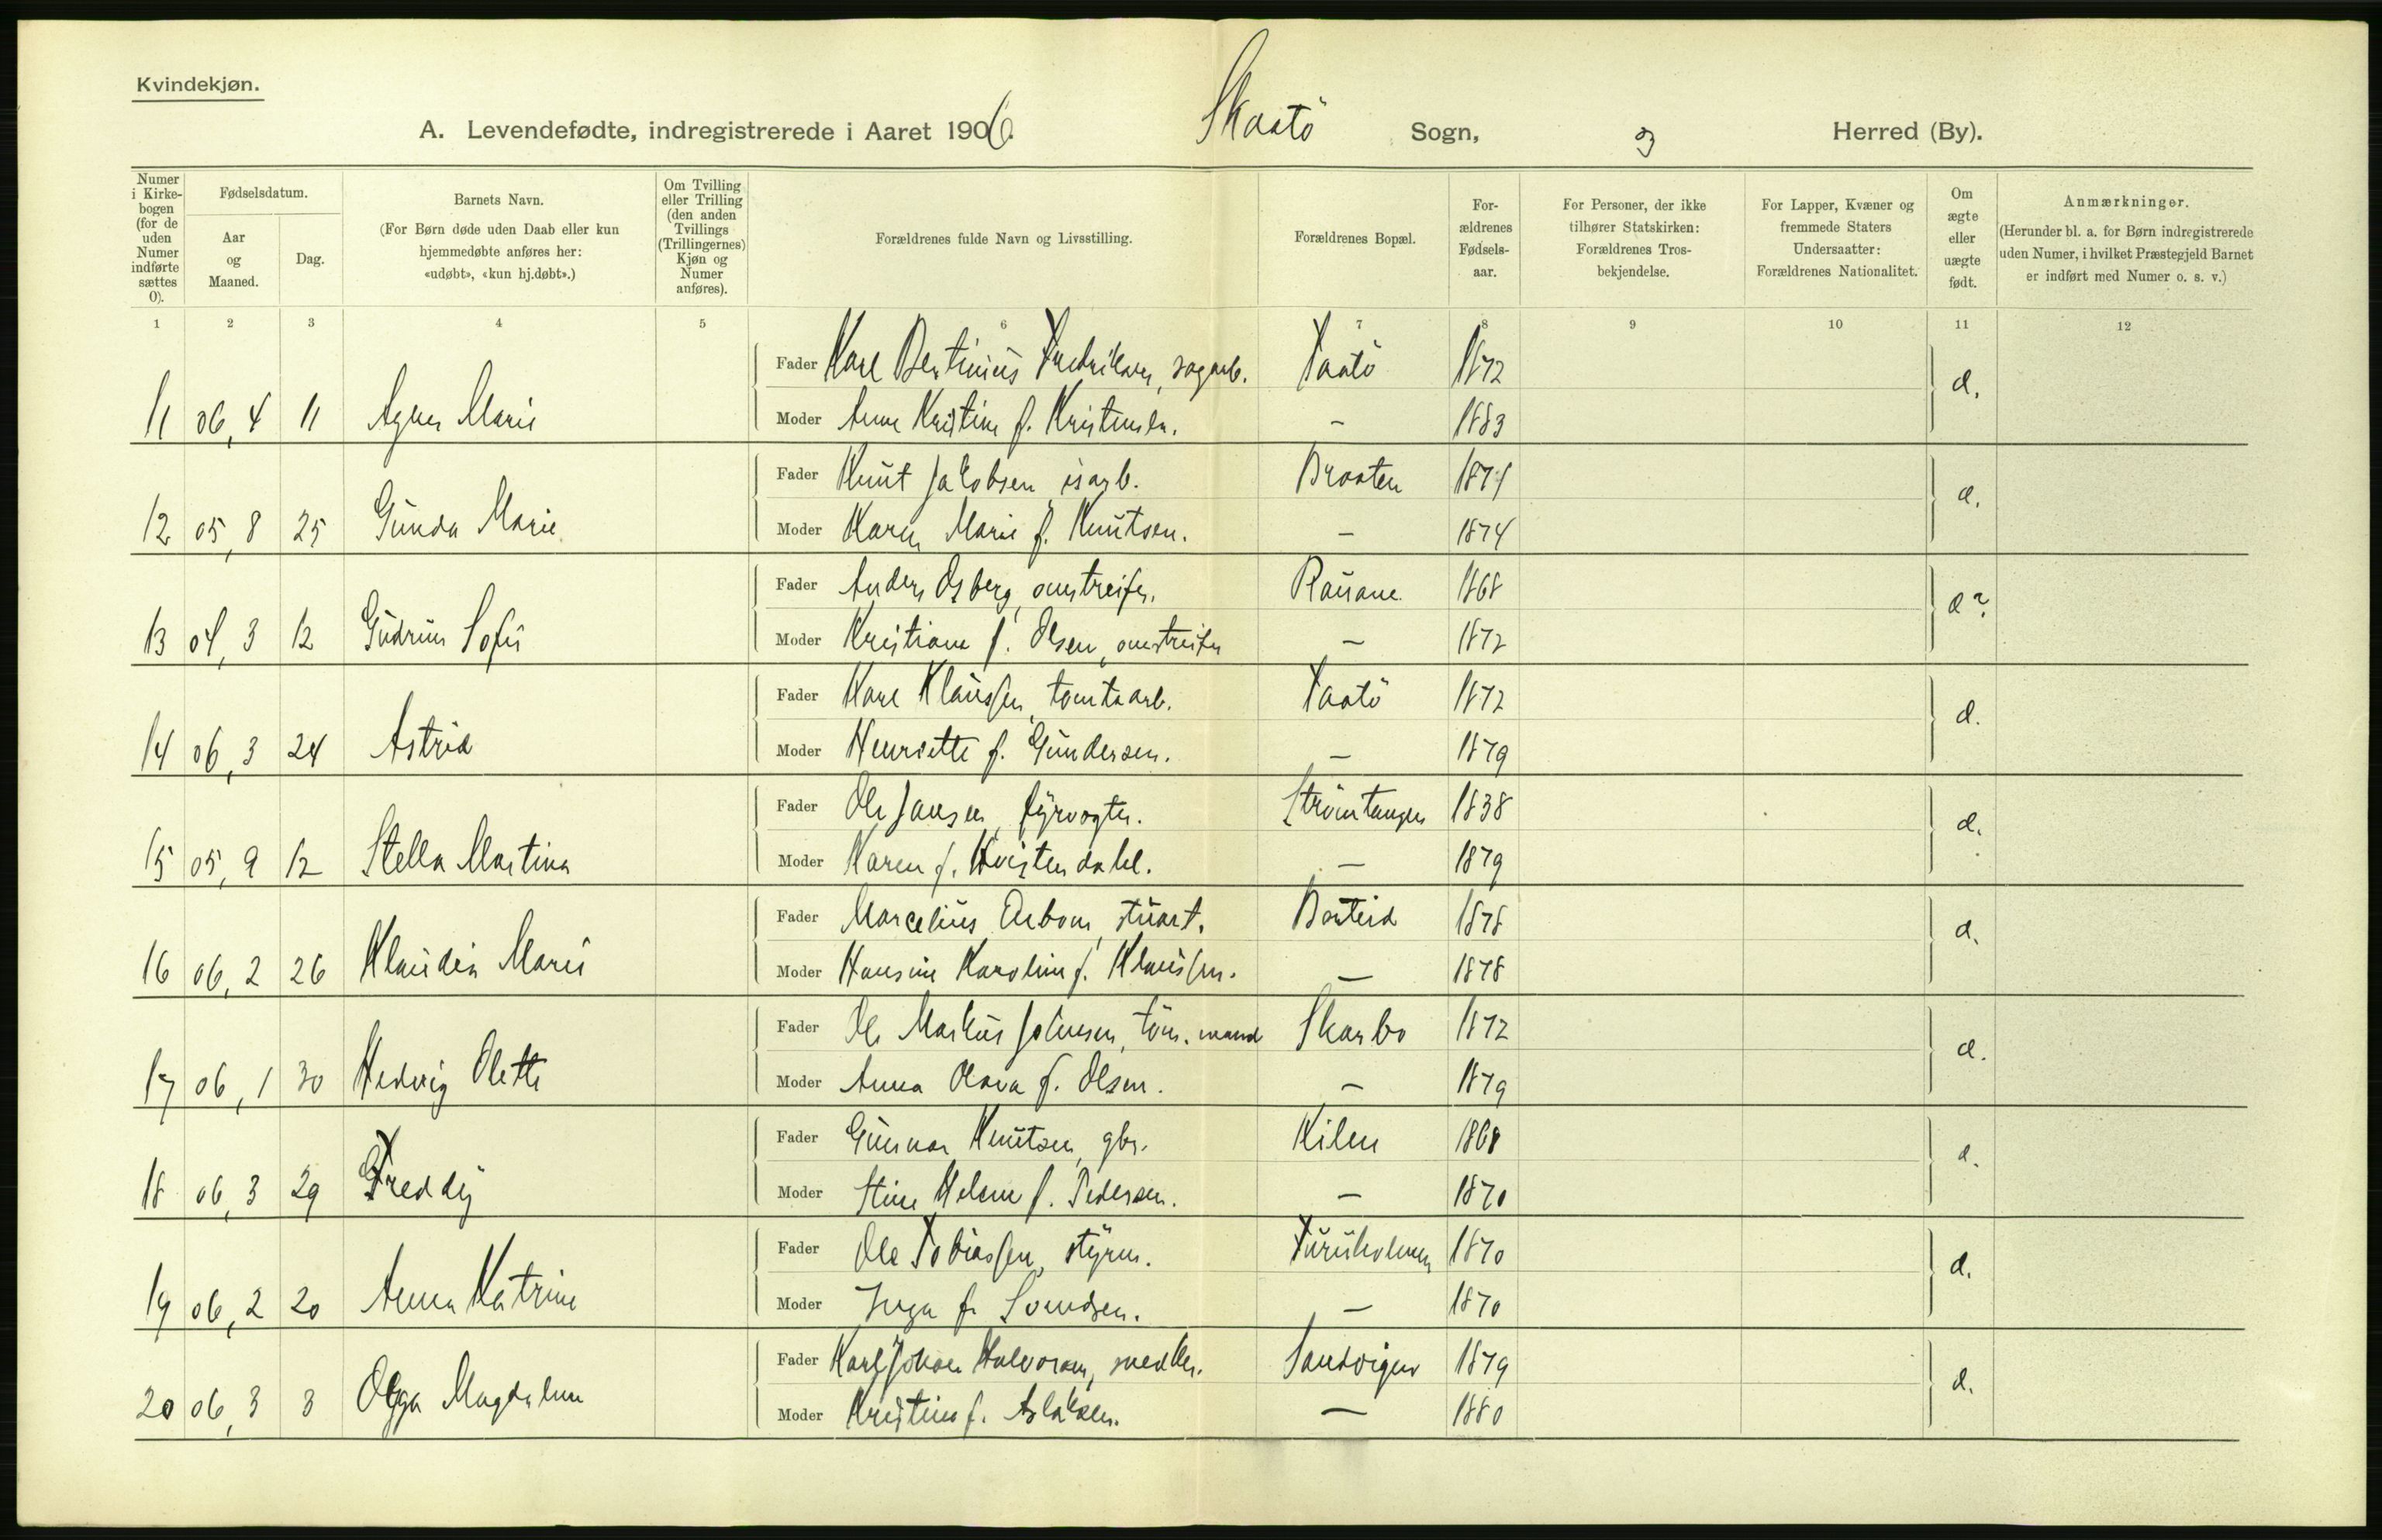 Kvindekjøn.
A. Levendefødte, indregistrerede i Aaret 1906. Skaatö Sogn, og Herred (By).
Numer i Kirkebogen (for de uden Numer indførte sættes 0).
Fødselsdatum.
Aar og Maaned.
Dag.
Barnets Navn.
(For Børn døde uden Daab eller kun hjemmedøbte anføres her: «udøbt», «kun hj.døbt».)
Om Tvilling eller Trilling (den anden Tvillings (Trillingernes) Kjøn og Numer anføres).
Forældrenes fulde Navn og Livsstilling.
Forældrenes Bopæl.
Forældrenes Fødselsaar.
For Personer, der ikke tilhører Statskirken: Forældrenes Trosbekjendelse.
For Lapper, Kvæner og fremmede Staters Undersaatter: Forældrenes Nationalitet.
Om ægte eller uægte født.
Anmærkninger.
(Herunder bl. a. for Børn indregistrerede uden Numer, i hvilket Præstegjeld Barnet er indført med Numer o. s. v.)
1 2 3 4 5 6 7 8 9 10 11 12
Fader Karl Bertinius Fredriksen, sagarb. Taatö 1872
11 06,4 11 Agnes Marie Moder Anne Kristine f. Kristensen. – 1883
Fader Knut Jakobsen isarb. Braaten 1871
12 05,8 25 Gunda Marie Moder Karen Marie f. Knutsen. – 1874
Fader Anders Osberg, omstreifer. Rauane 1868
13 04,3 12 Gudrun Sofie Moder Kristiane f. Olsen, omstreifer – 1872
Fader Karl Klaussen, tomtearb. Taatö 1872
14 06,3 24 Astrid Moder Henriette f. Gundersen. – 1879
Fader Ole Jansen, fyrvogter. Strömtangen 1838
15 05,9 12 Stella Martina Moder Karen f. Kvistendahl. – 1879
Fader Marcelius stuart. 1878
16 06,2 26 Klaudia Marie Moder Hansine Karoline f. Klaussen. – 1878
Fader Ole Markus Johnsen, töm.mand Skarbo 1872
17 06,1 30 Hedvig Olette Moder Anna Olava f. Olsen. – 1879
Fader Gunnar Knutsen, gbr. Kilen 1868
18 06,3 29 Freddy Moder Stine Helene f. Pedersen. – 1870
Fader Ole Tobiassen, styrm. Furuholmen 1870
19 06,2 20 Anna Katrine Moder Inga f. Svendsen. – 1870
Fader Karl Johan Halvorsen, snedker. Sandvigen 1879
20 06,3 3 Olga Magdalene Moder Kristine f. Aslaksen. – 1880